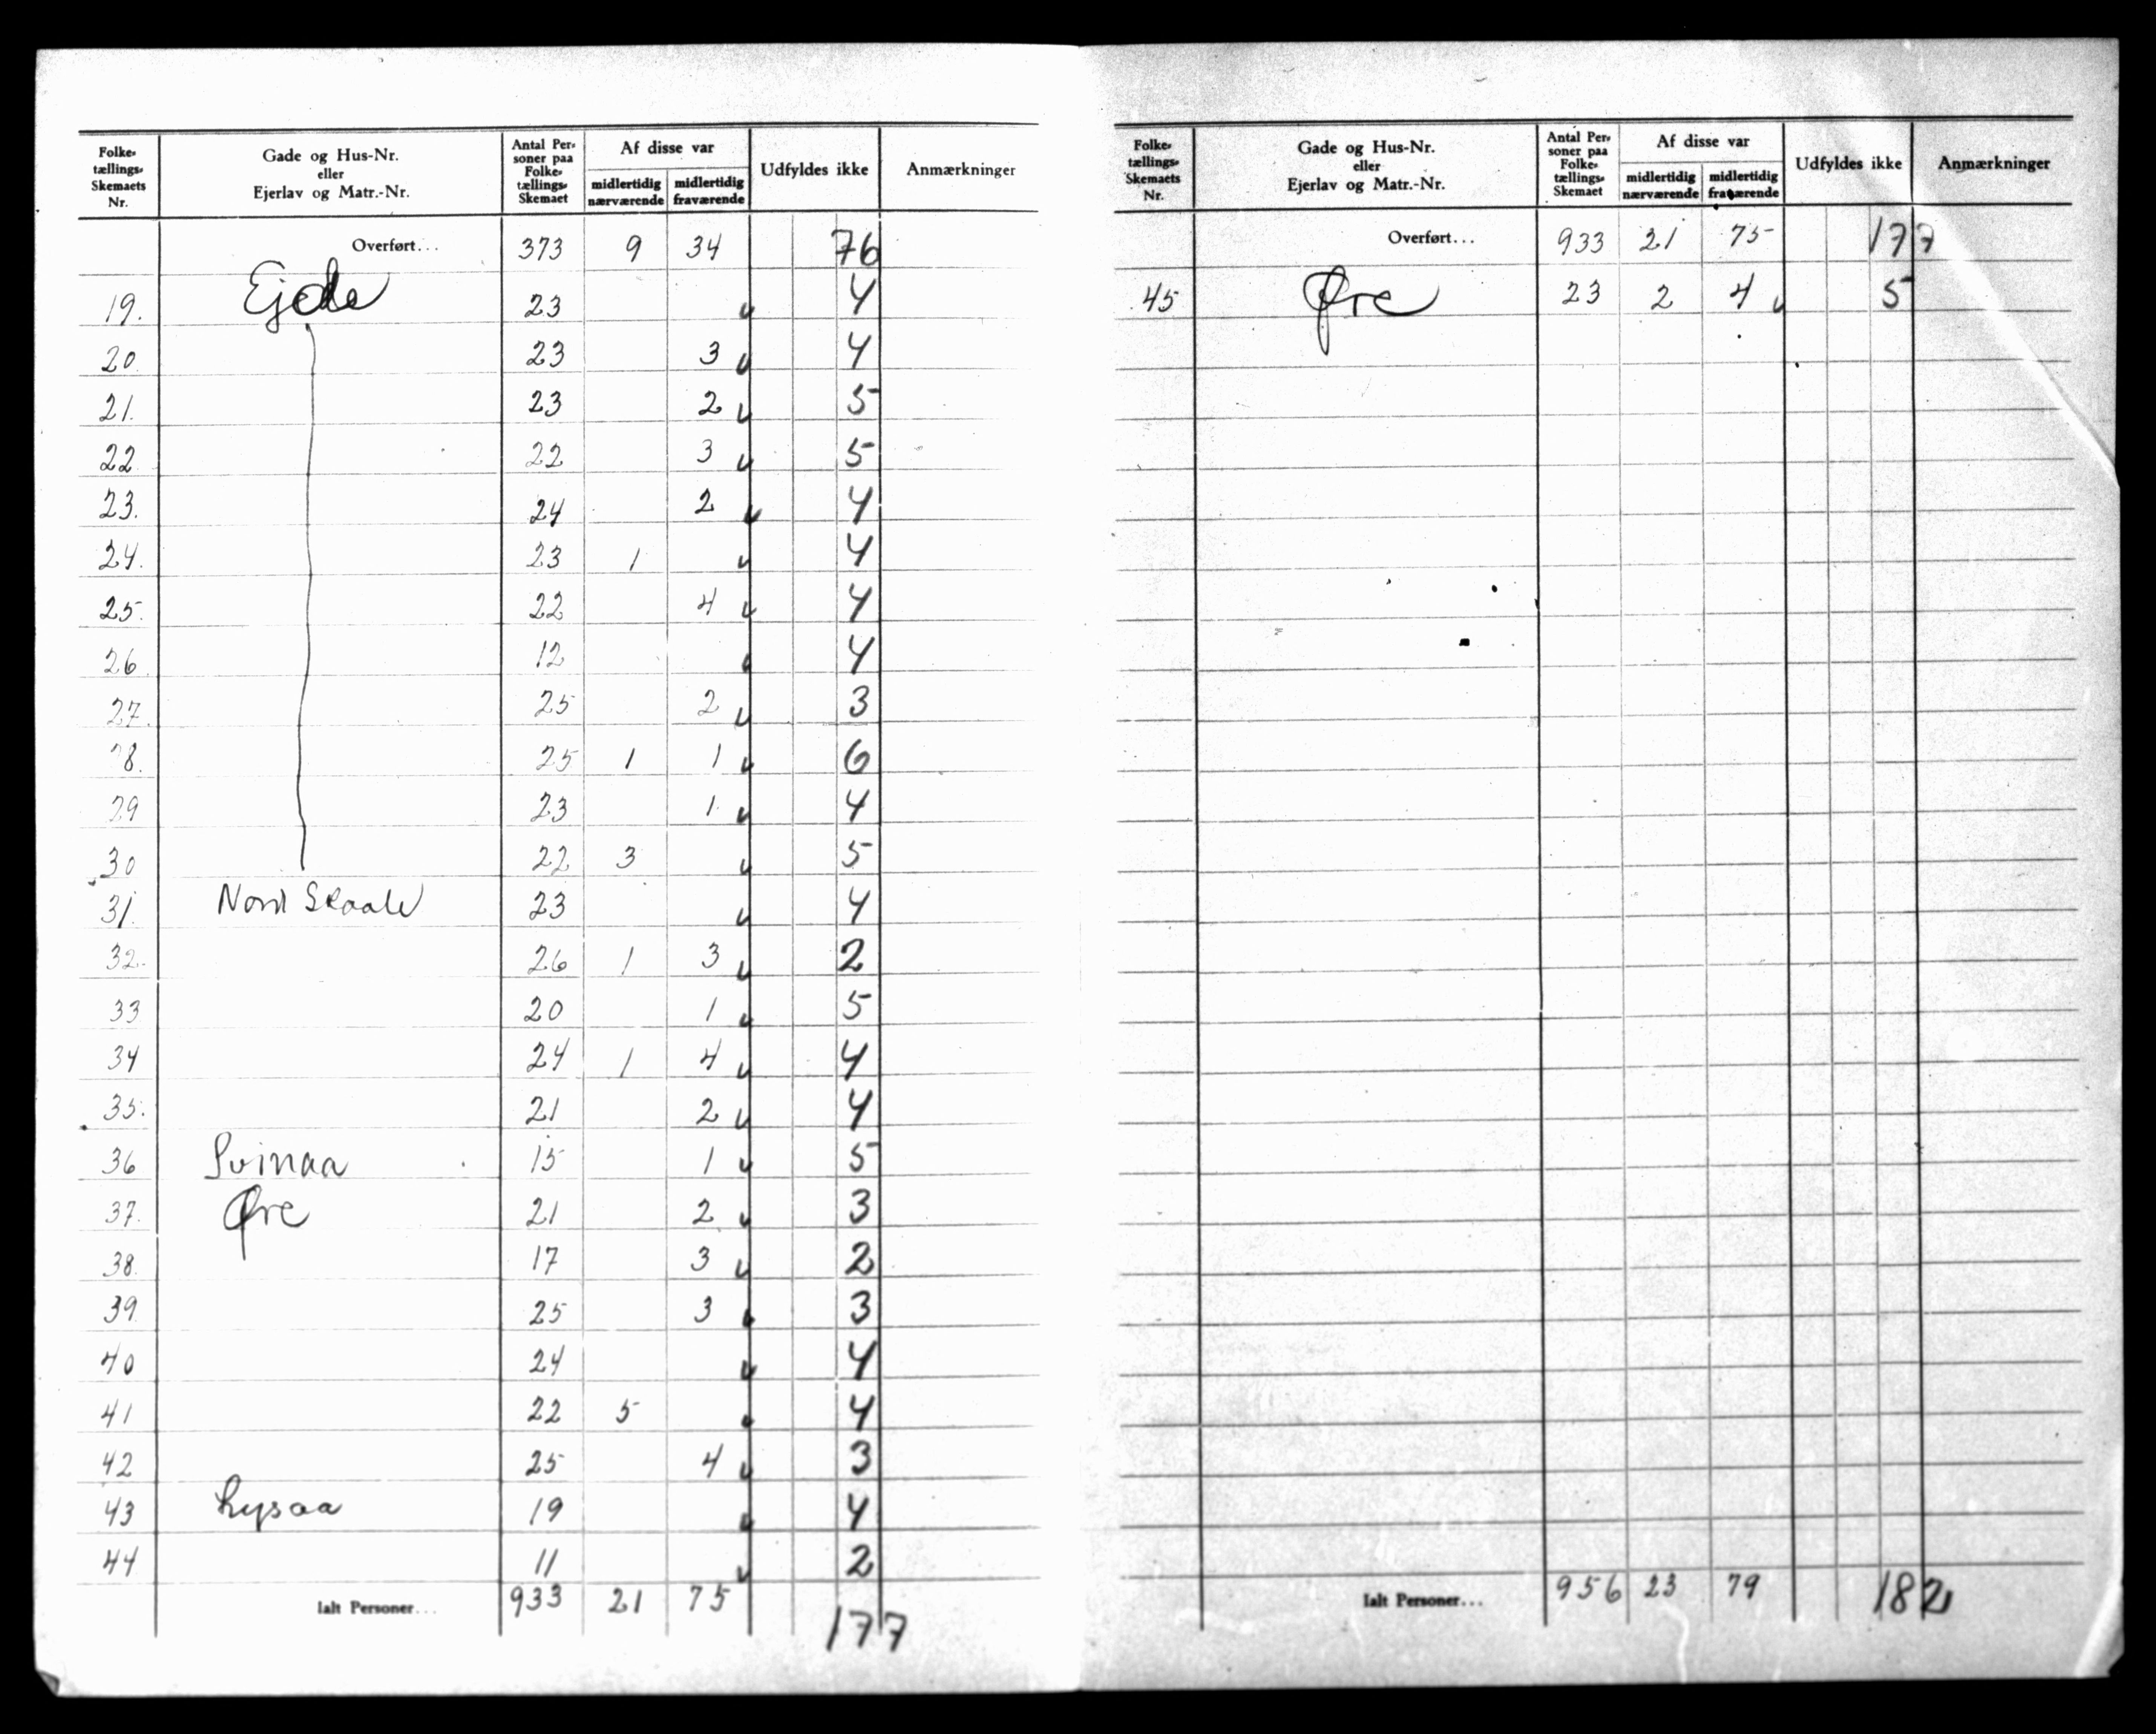 Folketællings-Skemaets Nr. | Gade og Hus-Nr. eller Ejerlav og Matr.-Nr. | Antal Personer paa Folketællings-Skemaet | Af disse var midlertidig nærværende | midlertidig fraværende | Udfyldes ikke | Anmærkninger
Overført... 373 9 34 76
19. Ejde 23 4
20. 23 3 4
21. 23 2 5
22. 22 3 5
23. 24 2 4
24. 23 1 4
25. 22 4 4
26. 12 4
27. 25 2 3
28. 25 1 1 6
29 23 1 4
30 22 3 5
31. Nord Skaale 23 4
32. 26 1 3 2
33 20 1 5
34 24 1 4 4
35. 21 2 4
36 Svinaa 15 1 5
37. Øre 21 2 3
38. 17 3 2
39. 25 3 3
40 24 4
41 22 5 4
42 25 4 3
43 Lysaa 19 4
44 11 2
Ialt Personer... 933 21 75
177
Folketællings-Skemaets Nr. | Gade og Hus-Nr. eller Ejerlav og Matr.-Nr. | Antal Personer paa Folketællings-Skemaet | Af disse var midlertidig nærværende | midlertidig fraværende | Udfyldes ikke | Anmærkninger
Overført... 933 21 75 177
45 Øre 23 2 4 5
Ialt Personer... 956 23 79 182